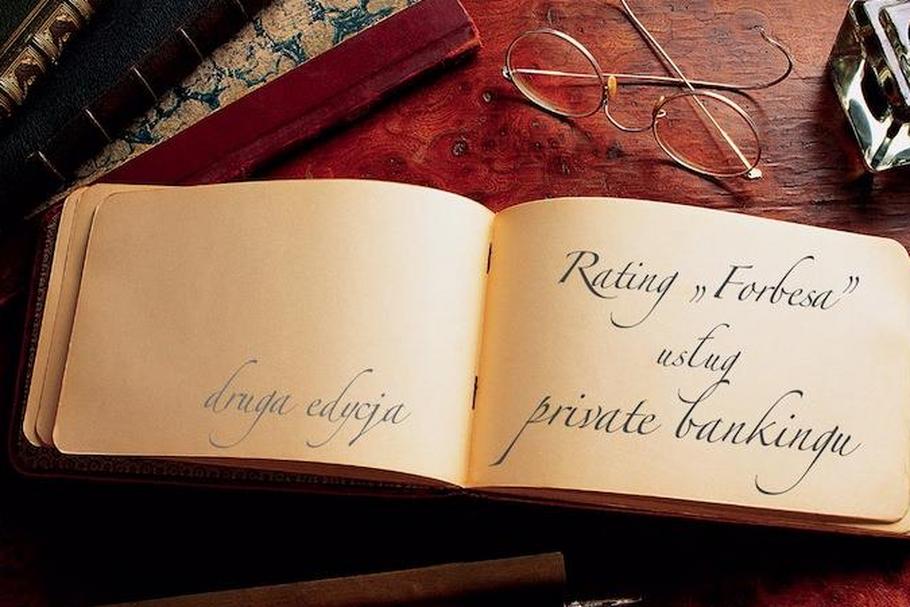 druga edycja
Rating „Forbesa”
usług
private bankingu